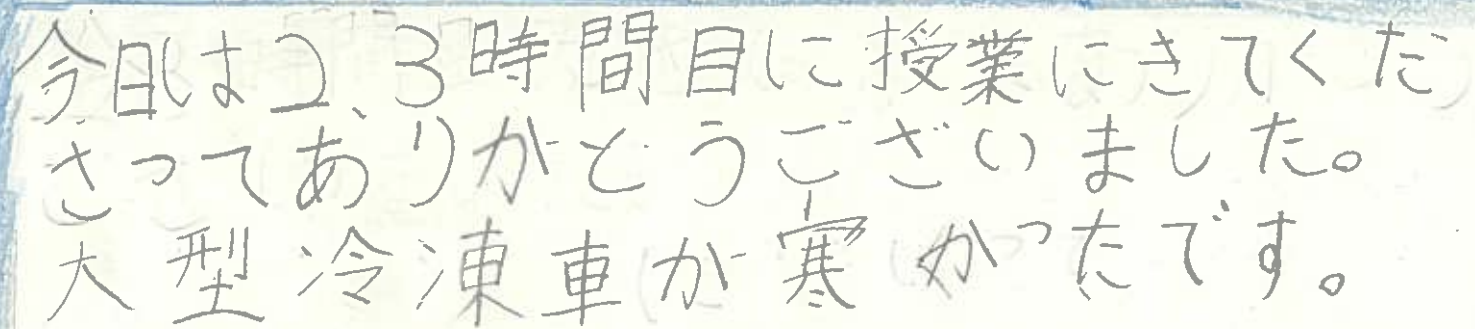 今日は2、3時間目に授業にきてくだ
さってありがとうございました。
大型冷凍車が寒かったです。